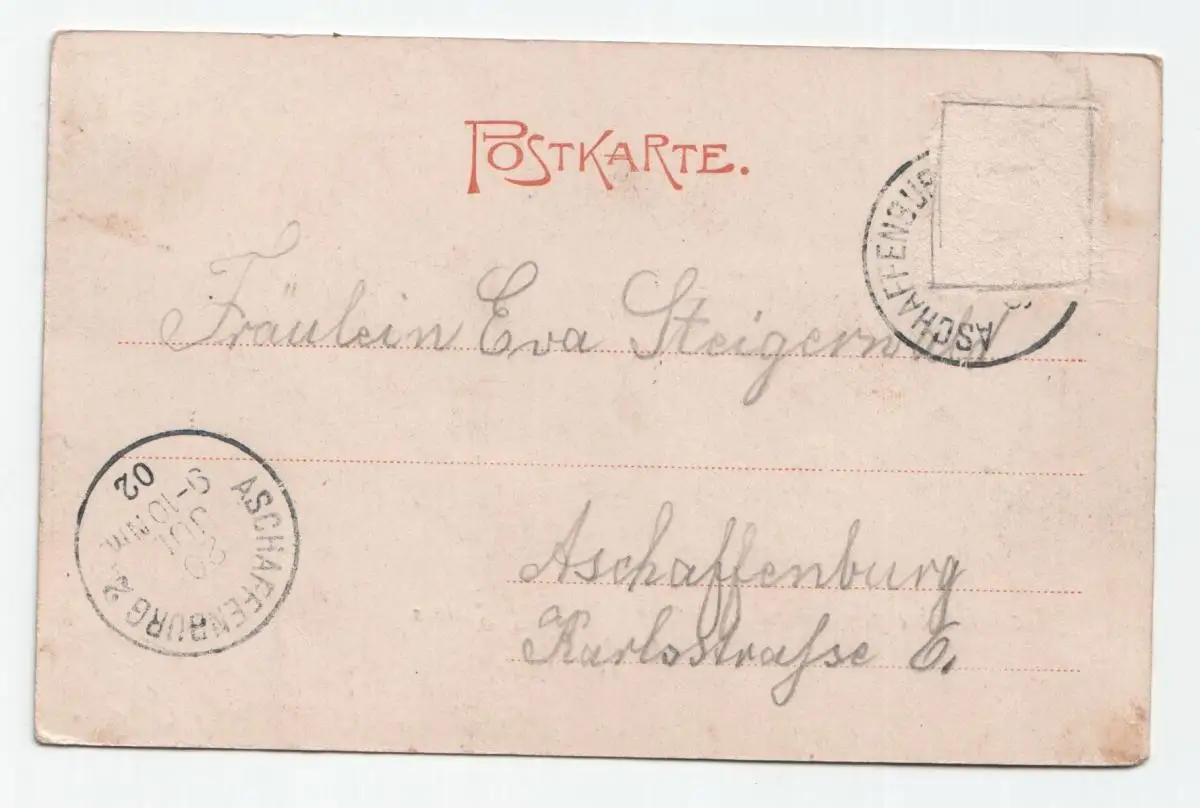 POSTKARTE.
ASCHAFFENBUR
Fräulein Eva Steigerwald
ASCHAFFENBURG 2.
20
JUL
9-10 Nm.
02
Aschaffenburg
Karlsstrafse 6.